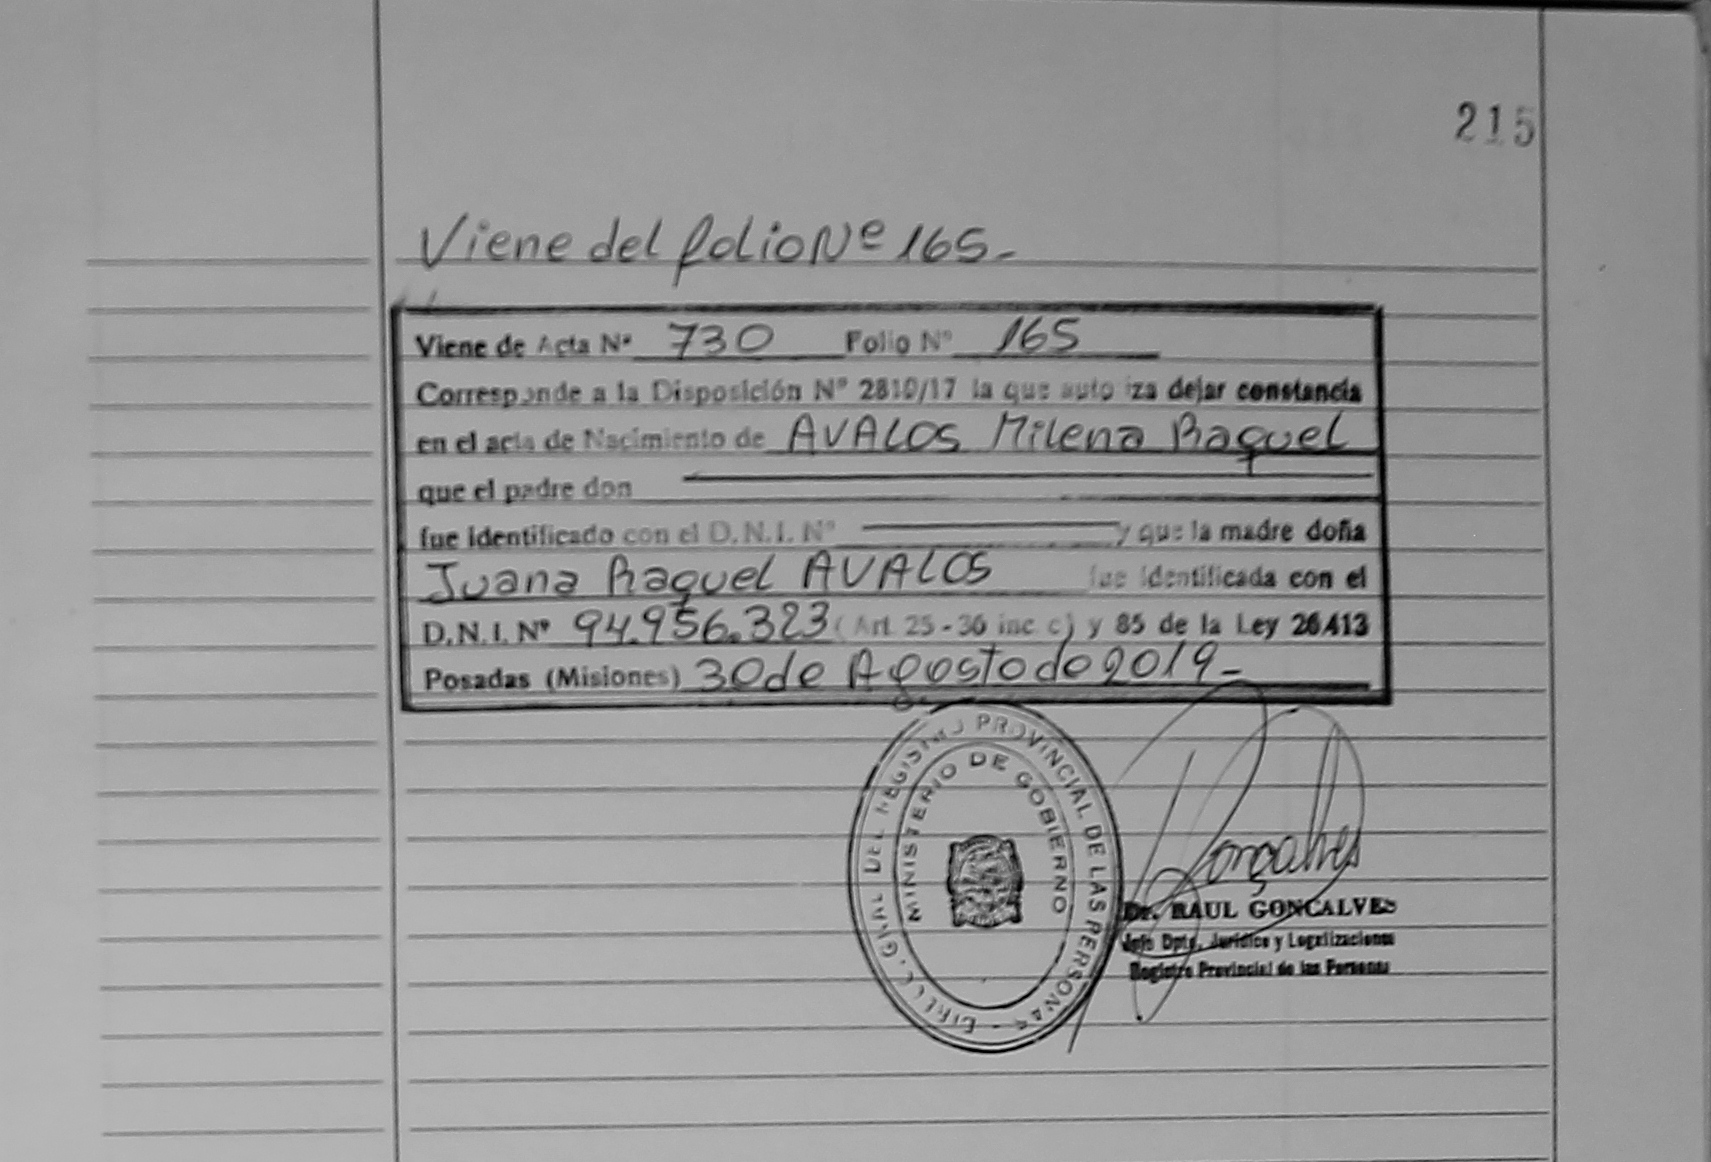 215
Viene del folio Nº 165-
Viene de Acta Nº 730 Folio Nº 165
Corresponde a la Disposición Nº 2810/17 la que auto iza dejar constancia
en el acta de Nacimiento de AVALOS Milena Raquel
que el padre don
fue identificado con el D.N.I. Nº y que la madre doña
Juana Raquel AVALOS fue identificada con el
D.N.I. Nº 94.956.323 (Art. 25-36 inc. c) y 85 de la Ley 26413
Posadas (Misiones) 30 de Agosto de 2019-
GRAL DEL REGISTRO PROVINCIAL DE LAS PERSONAS
MINISTERIO DE GOBIERNO
Gonçalves
Dr. RAUL GONCALVES
Jefe Dpto. Jurídico y Legalizaciones
Registro Provincial de las Personas